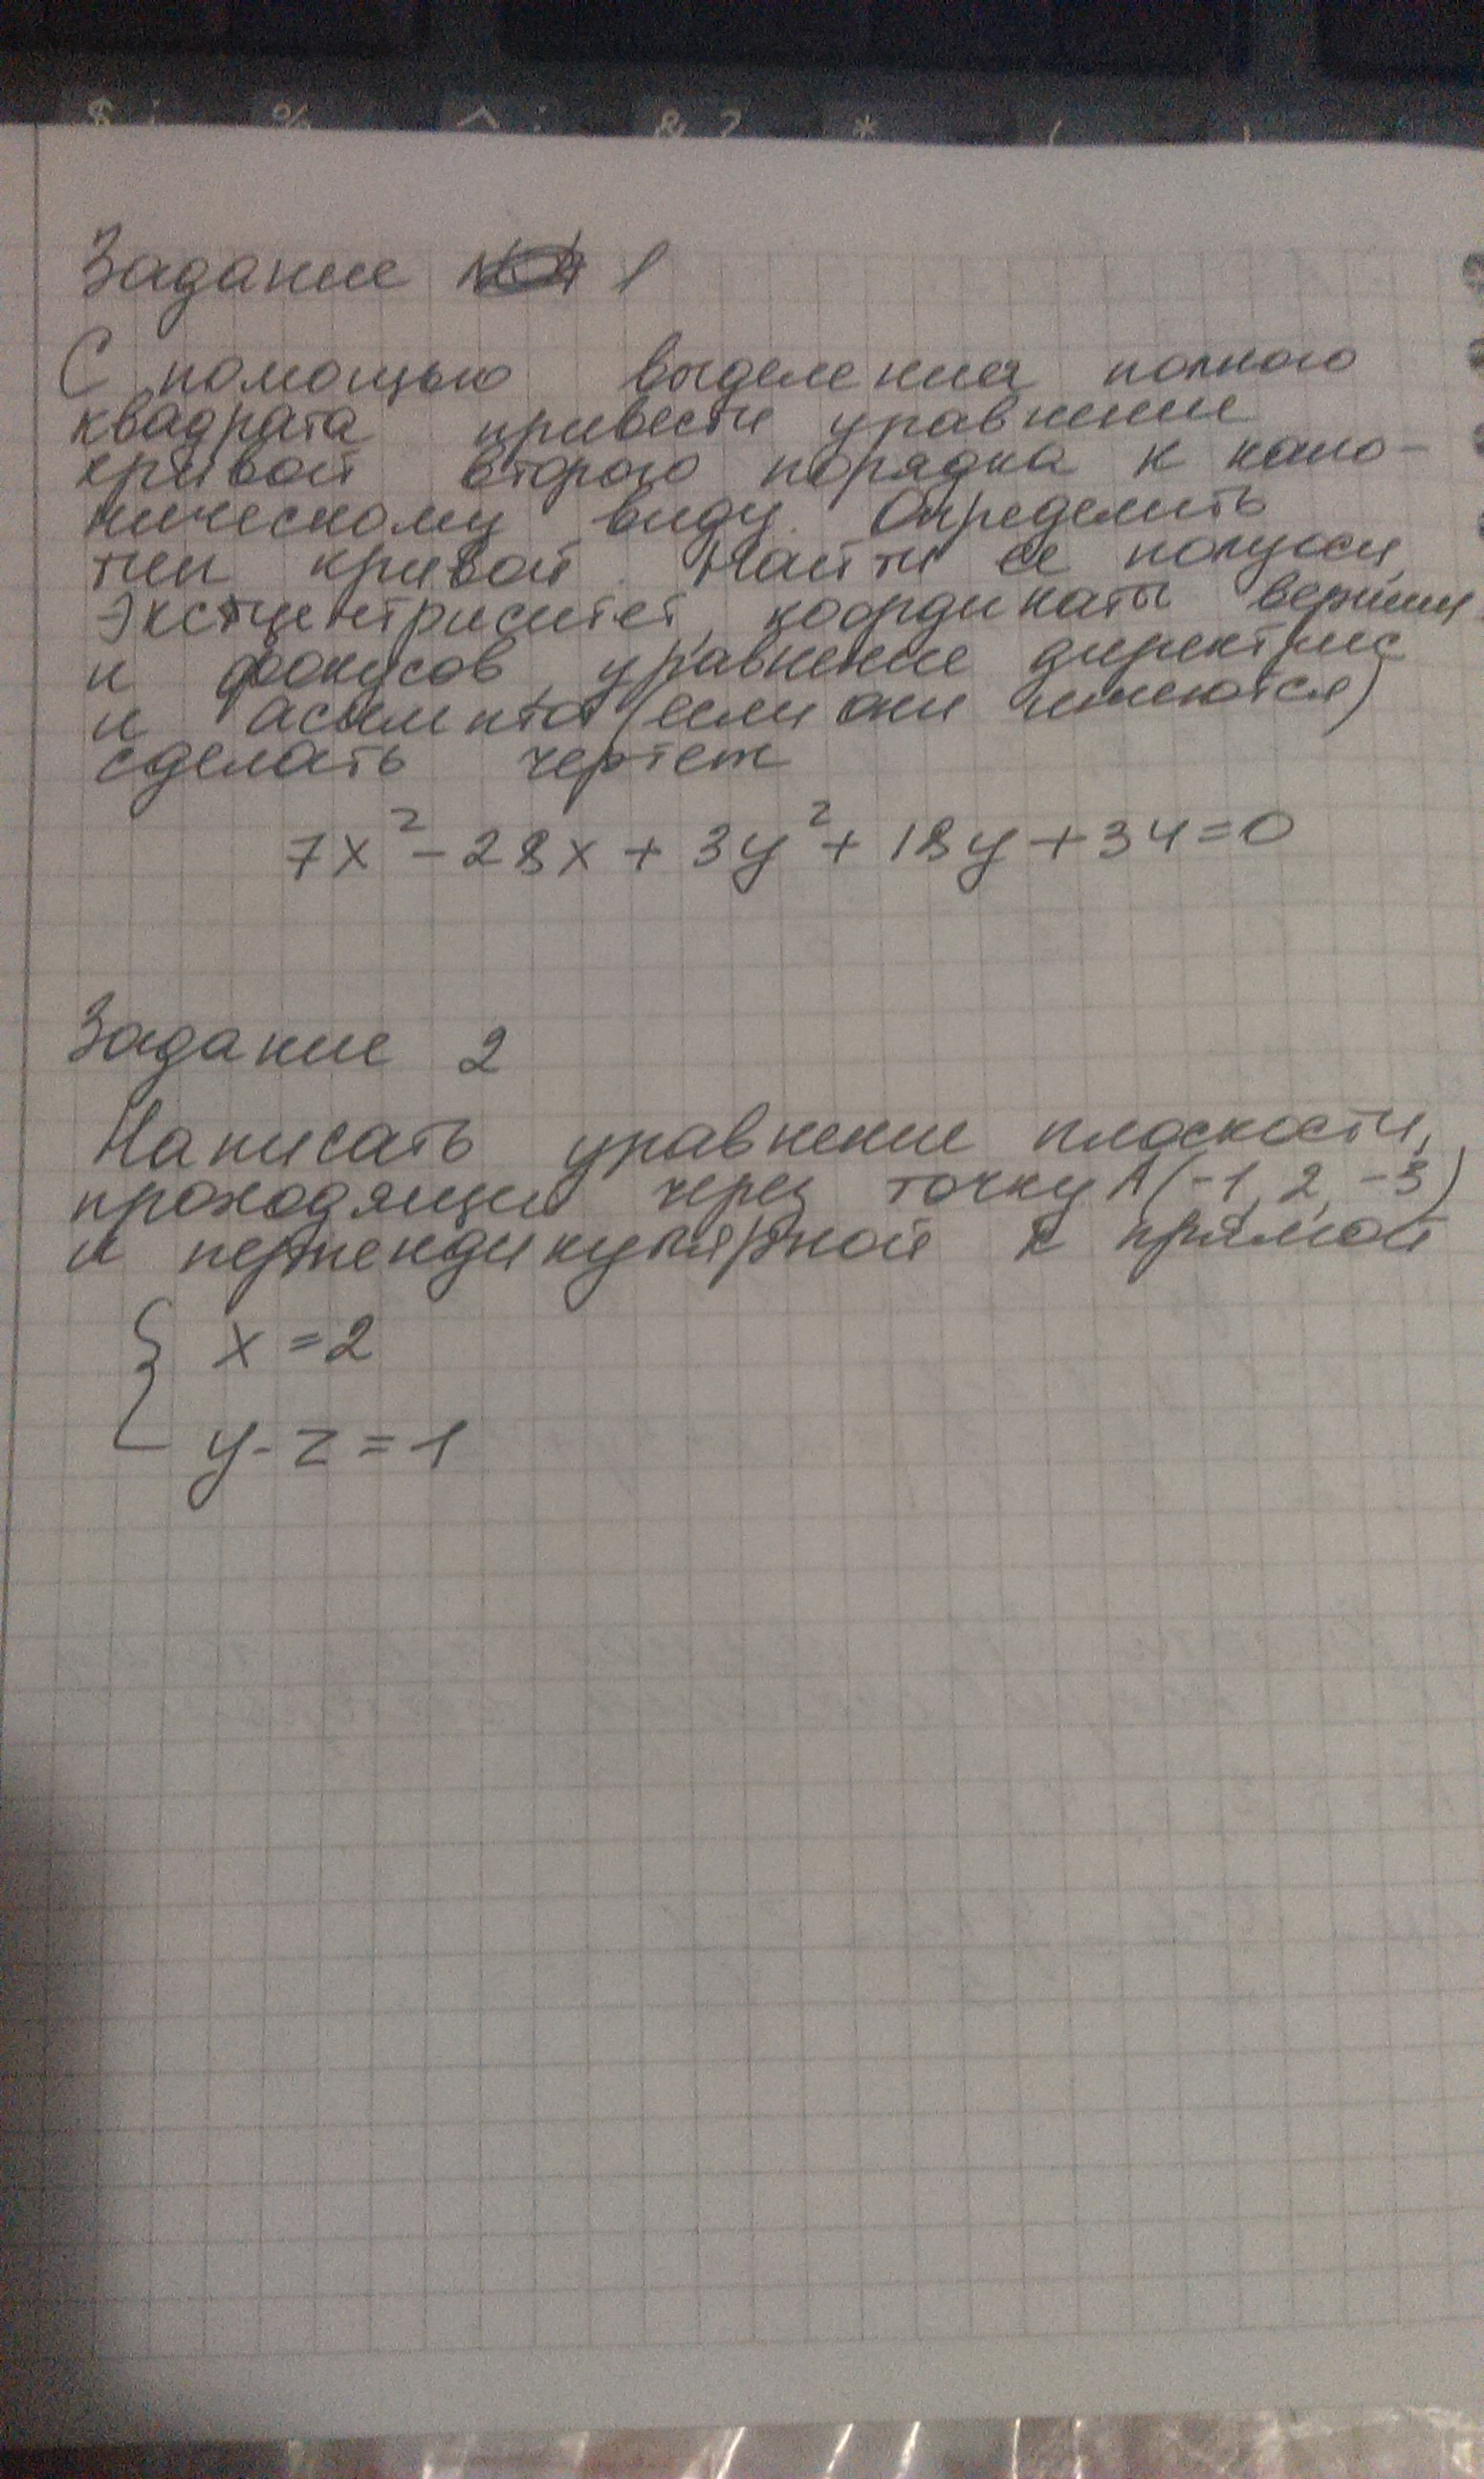 $ ; % ^ : & ? * ( )
Задание 1
С помощью выделения полного
квадрата привести уравнение
кривой второго порядка к кано-
ническому виду. Определить
тип кривой. Найти ее полуоси,
эксцентриситет, координаты вершин
и фокусов, уравнение директрис
и асимптот (если они имеются)
сделать чертеж
7x² - 28x + 3y² + 18y + 34 = 0
Задание 2
Написать уравнение плоскости,
проходящей через точку A(-1, 2, -3)
и перпендикулярной к прямой
x = 2
y - z = 1